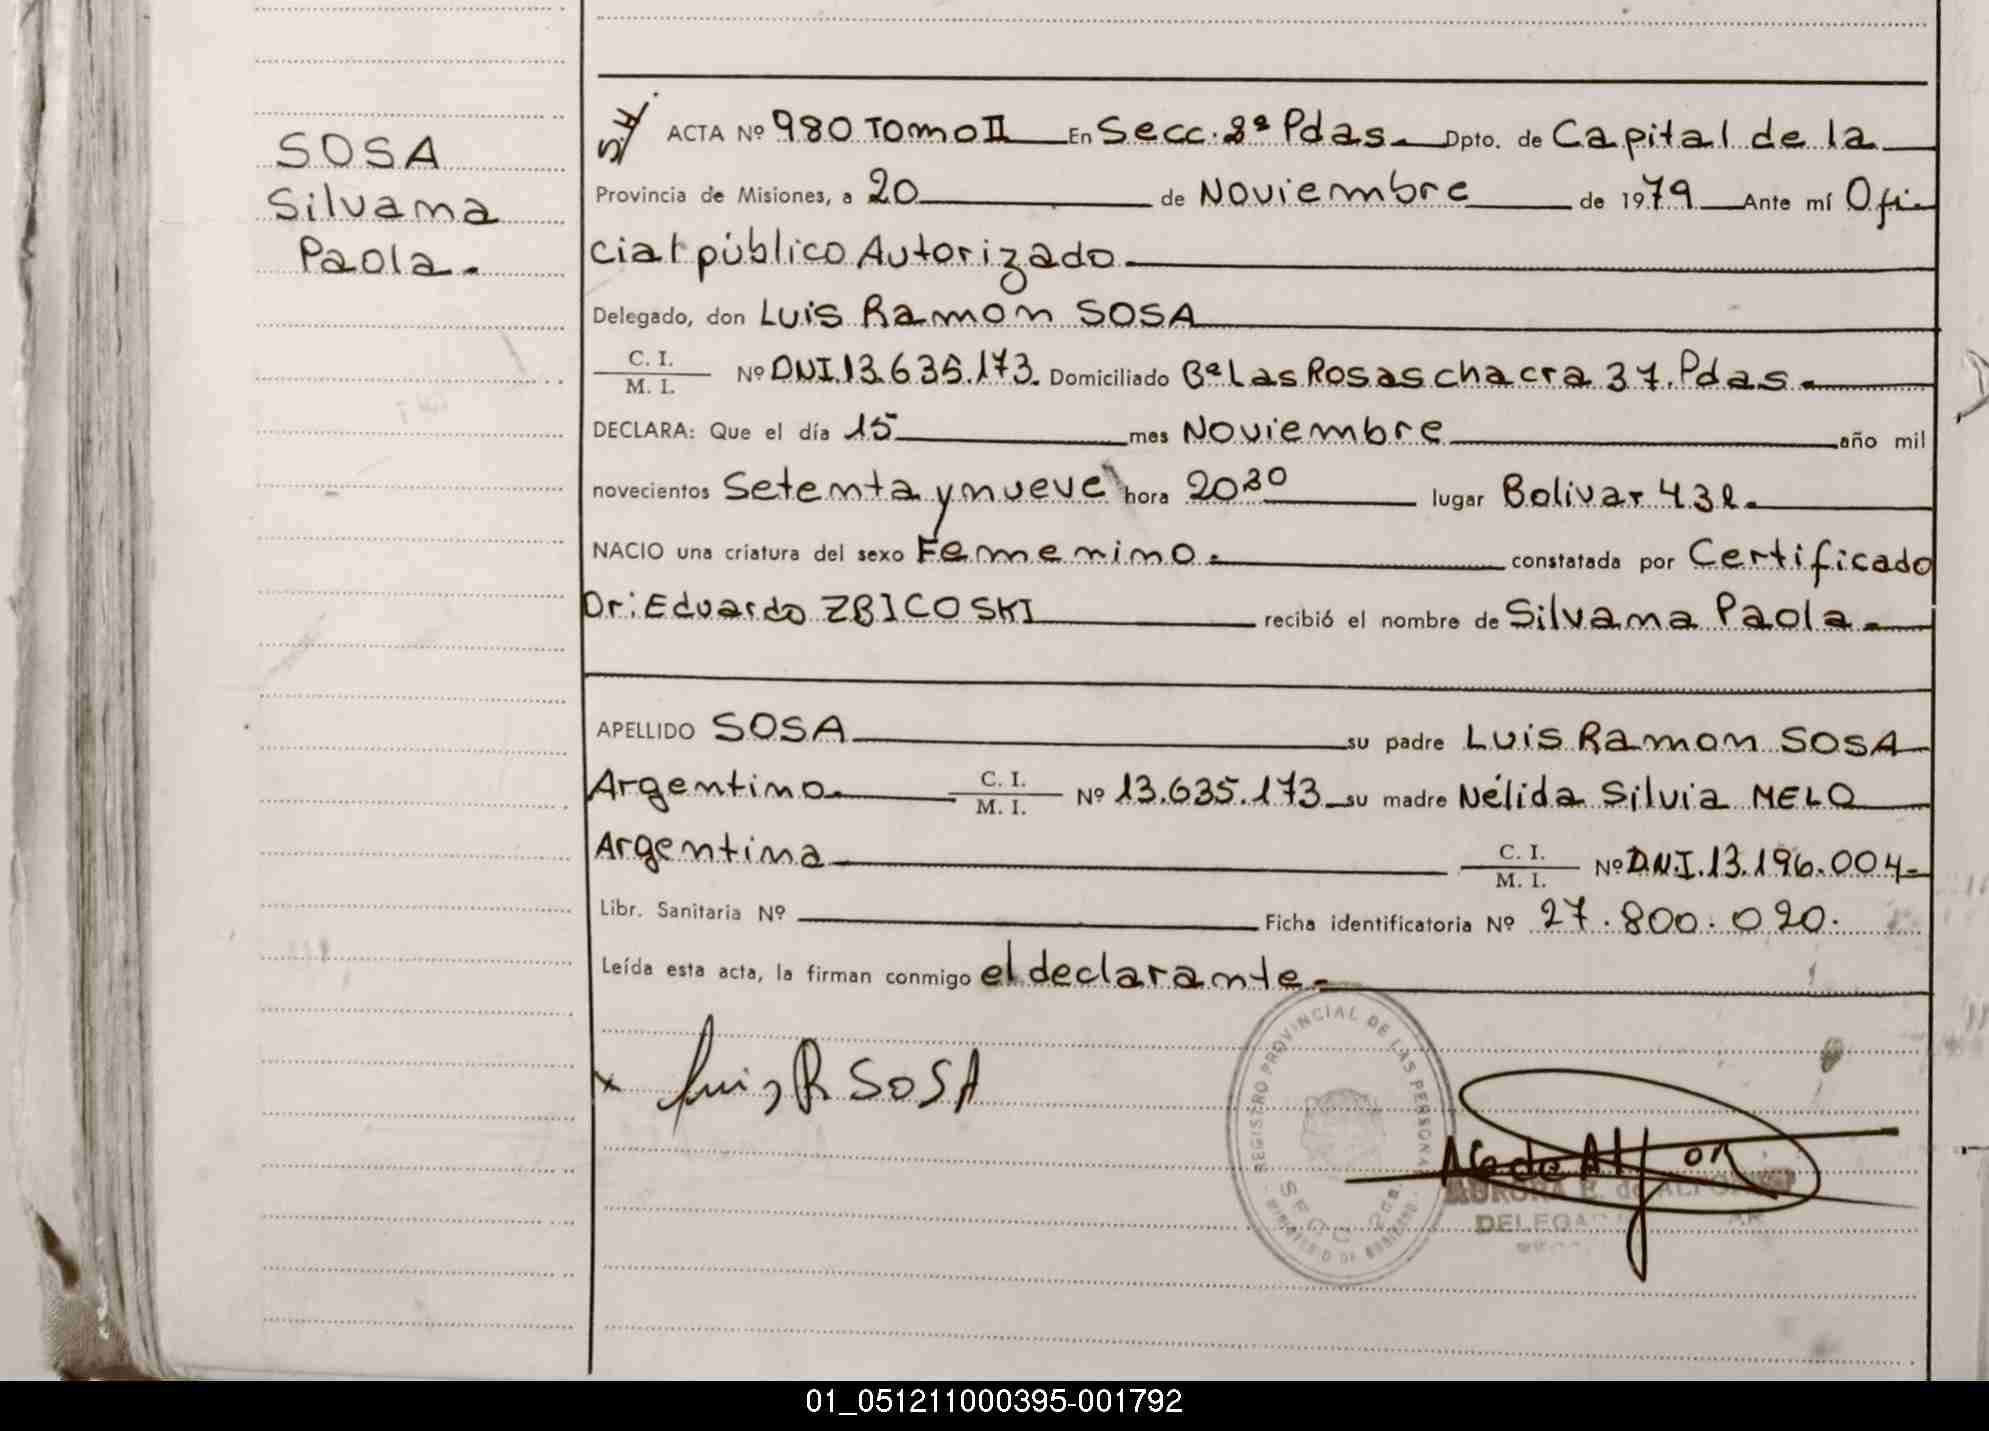 SOSA
Silvana
Paola.
S/H. ACTA Nº 980 Tomo II En Secc. 2ª Pdas. Dpto. de Capital de la
Provincia de Misiones, a 20 de Noviembre de 1979 Ante mí Ofi-
cial público Autorizado.
Delegado, don Luis Ramon SOSA
C. I.
M. I. Nº DNI.13.635.173. Domiciliado Bº Las Rosas chacra 37. Pdas.
DECLARA: Que el día 15 mes Noviembre año mil
novecientos Setenta y nueve hora 20³⁰ lugar Bolivar 432.
NACIO una criatura del sexo Femenino. constatada por Certificado
Dr: Eduardo ZBICOSKI recibió el nombre de Silvana Paola.
APELLIDO SOSA su padre Luis Ramon SOSA
Argentino. C. I.
M. I. Nº 13.635.173 su madre Nélida Silvia MELO
Argentina C. I.
M. I. Nº D.N.I.13.196.004.
Libr. Sanitaria Nº Ficha identificatoria Nº 27.800.020.
Leída esta acta, la firman conmigo el declarante.
x Luis R SOSA
REGISTRO PROVINCIAL DE LAS PERSONAS
SECC. 2da.
MINISTERIO DE GOBIERNO
AURORA E. de
01_051211000395-001792